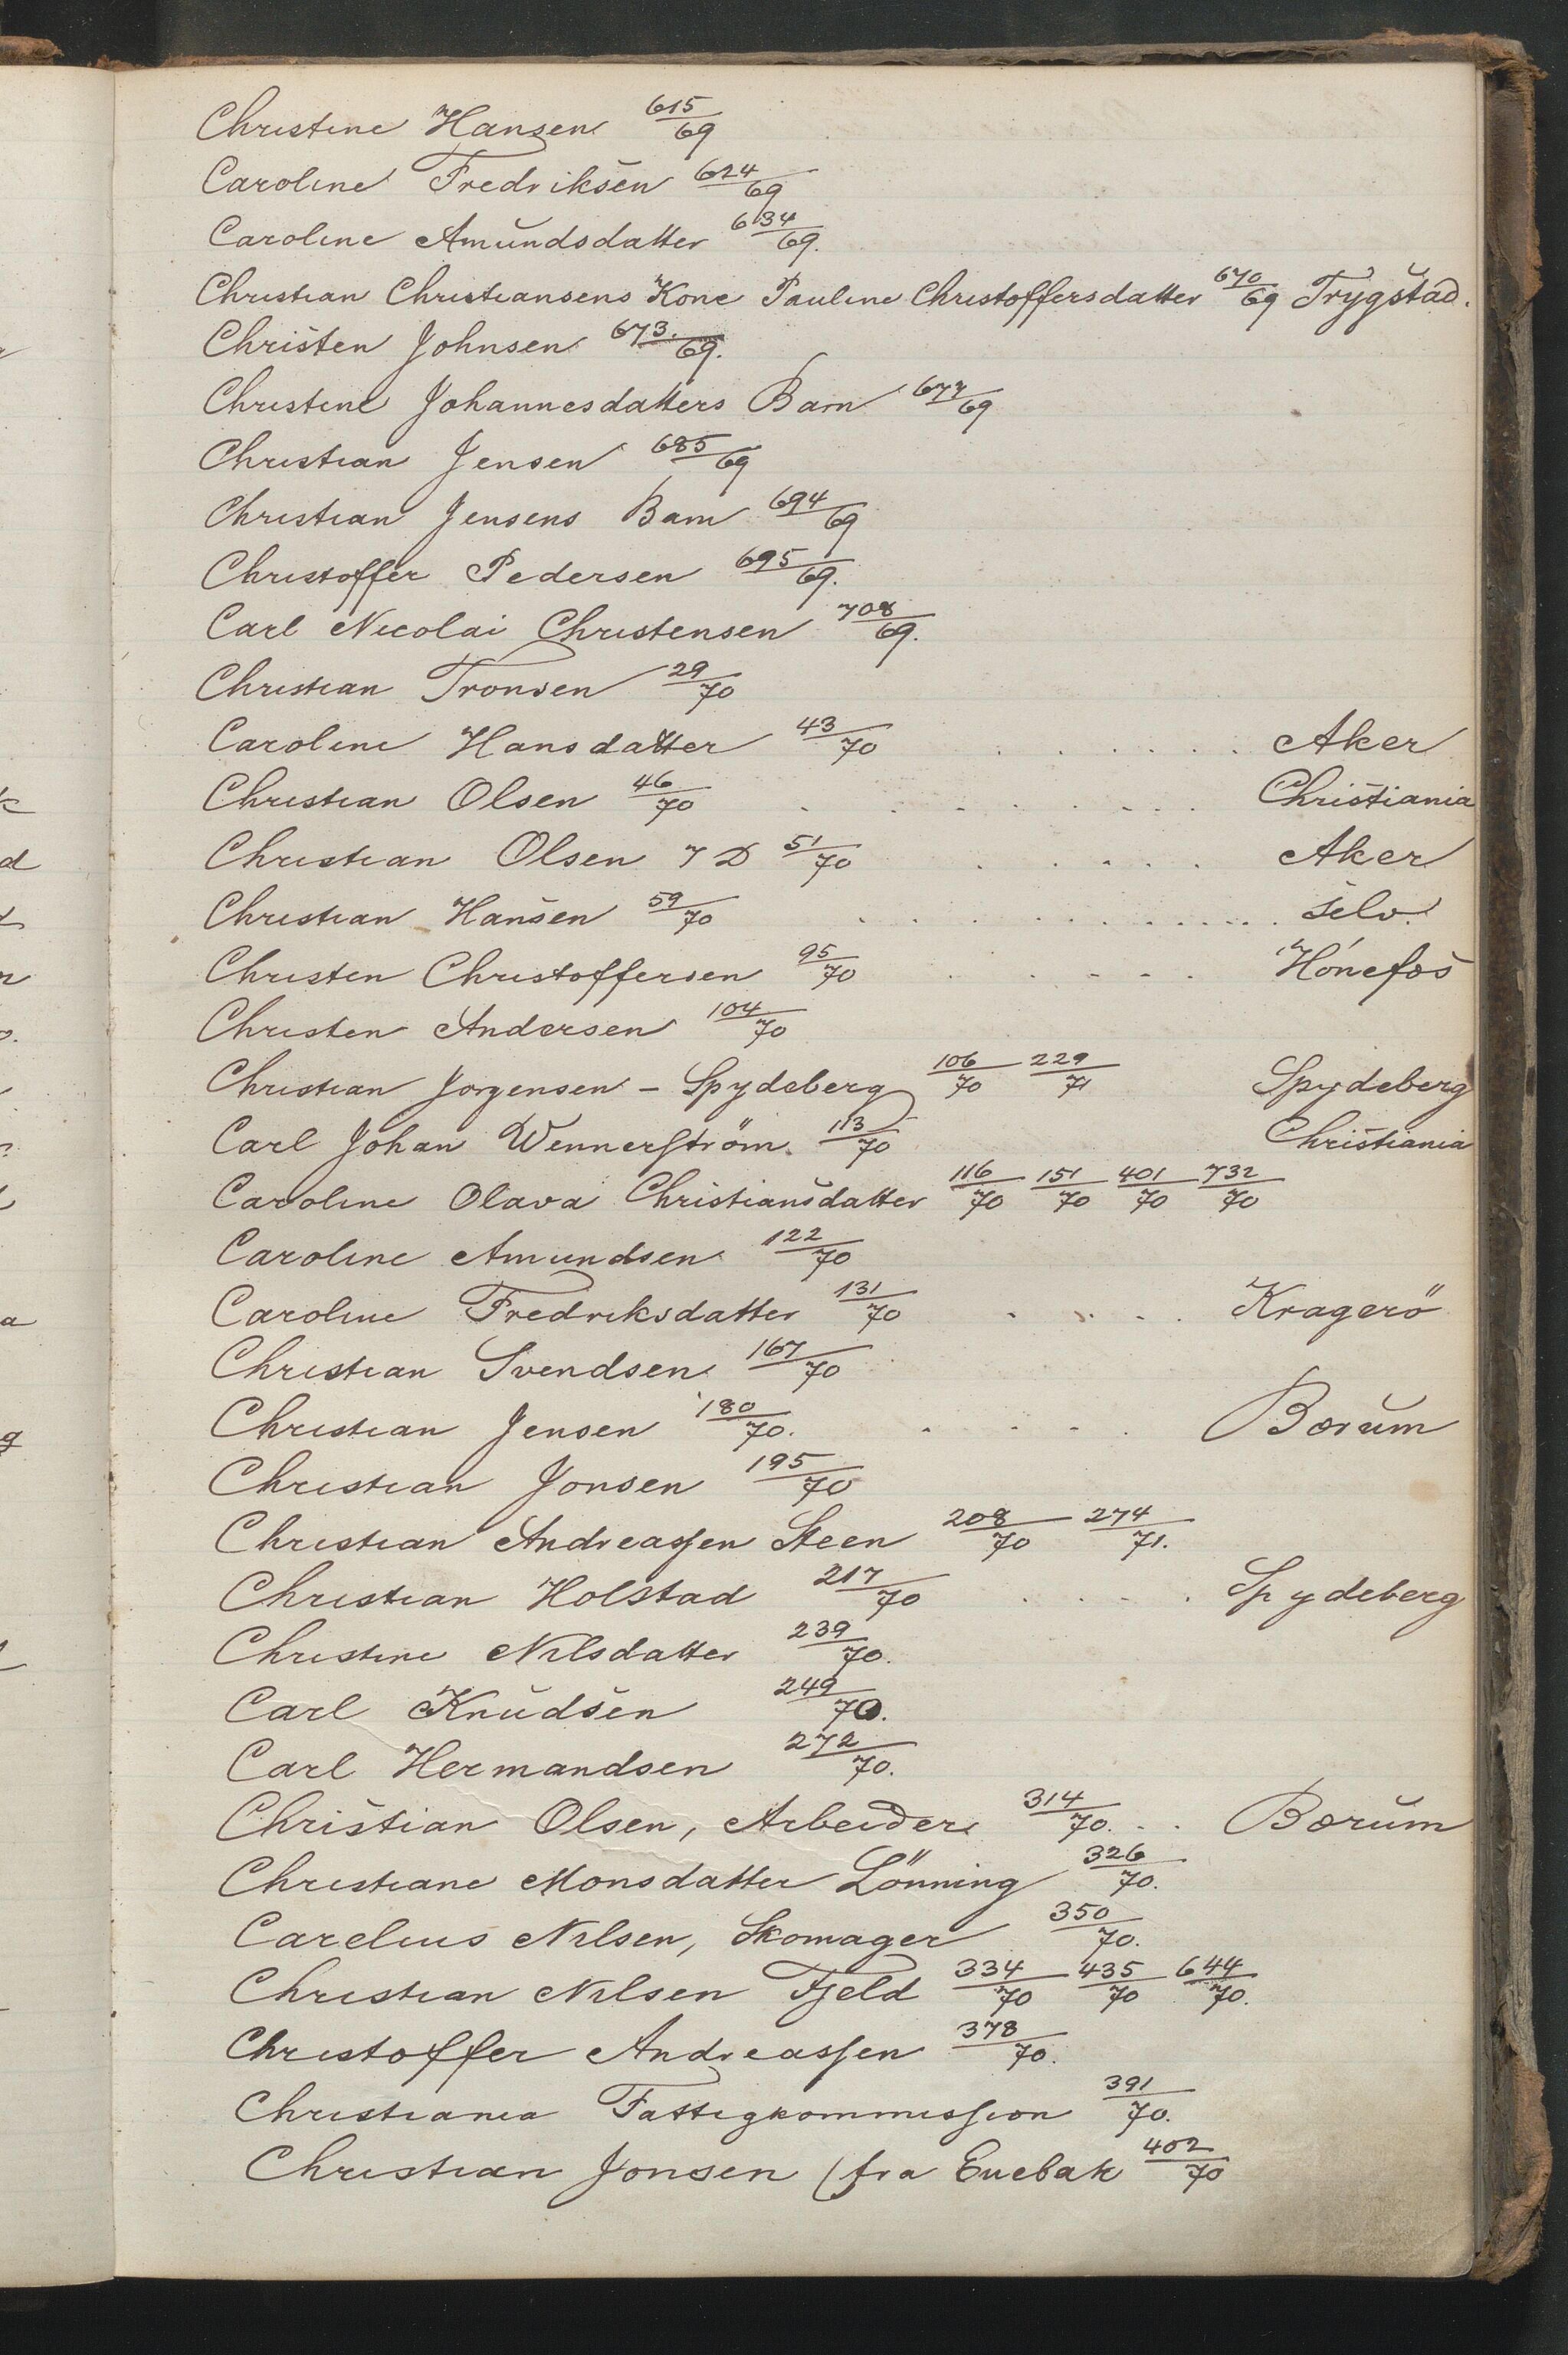 Christine Hansen 615/69
Caroline Fredriksen 624/69
Caroline Amundsdatter 634/69.
Christian Christiansens Kone Pauline Christoffersdatter 670/69 Trygstad.
Christen Johnsen 673./69.
Christine Johannesdatters Barn 677/69
Christian Jensen 685/69
Christian Jensens Barn 694/69
Christoffer Pedersen 695/69.
Carl Nicolai Christensen 708/69.
Christian Tronsen 29/70
Caroline Hansdatter 43/70 . . . . . . Aker
Christian Olsen 46/70 . . . . . . . Christiania
Christian Olsen 7 D 51/70 . . . . . Aker
Christian Hansen 59/70 . . . . . . . . . . . selv.
Christen Christoffersen 95/70 . . . . . Hónefos
Christen Andersen 104/70
Christian Jorgensen - Spydeberg 106/70 229/71 Spydeberg
Carl Johan Wennerström. 113/70 Christiania
Caroline Olava Christiansdatter 116/70 151/70 401/70 732/70
Caroline Amundsen 122/70
Caroline Fredriksdatter 131/70 . . . . Kragerö
Christian Svendsen 167/70
Christian Jensen 180/70. . . . . . Bærum
Christian Jonsen 195/70
Christian Andreassen Steen 208/70 274/71.
Christian Holstad 217/70 . . . . . Spydeberg
Christine Nilsdatter 239/70.
Carl Knudsen 249/70.
Carl Hermandsen 272/70.
Christian Olsen, Arbeider 314/70. . . Bærum
Christiane Monsdatter Lönning 326/70.
Carelius Nilsen, Skomager 350/70.
Christian Nilsen Fjeld 334/70 435/70 644/70.
Christoffer Andreassen 378/70.
Christiania Fattigkommission 391/70.
Christian Jonsen (fra Enebak 402/70